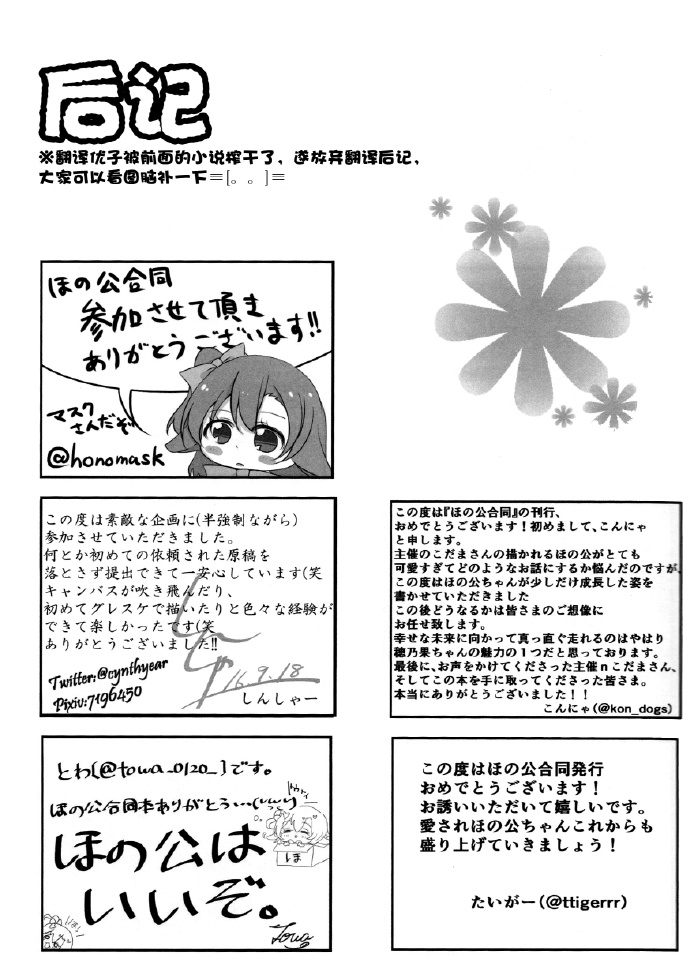 后记
※翻译优子被前面的小说榨干了，遂放弃翻译后记，
大家可以看图脑补一下≡[。。]≡
ほの公合同
参加させて頂き
ありがとうございます!!
マスク
さんだぞ
@honomask
この度は素敵な企画に(半強制ながら)
参加させていただきました。
何とか初めての依頼された原稿を
落とさず提出できて一安心しています(笑
キャンバスが吹き飛んだり、
初めてグレスケで描いたりと色々な経験が
できて楽しかったです(笑
ありがとうございました!!
Twitter:@cynthyear
Pixiv:7196450
16.9.18
しんしゃー
とわ[@towa_0120_]です。
ほの公合同本ありがとう
ほの公は
いいぞ。
ほ
Towa
この度は『ほの公合同』の刊行、
おめでとうございます！初めまして、こんにゃ
と申します。
主催のこだまさんの描かれるほの公がとても
可愛すぎてどのようなお話にするか悩んだのですが、
この度はほの公ちゃんが少しだけ成長した姿を
書かせていただきました
この後どうなるかは皆さまのご想像に
お任せ致します。
幸せな未来に向かって真っ直ぐ走れるのはやはり
穂乃果ちゃんの魅力の１つだと思っております。
最後に、お声をかけてくださった主催ｎこだまさん、
そしてこの本を手に取ってくださった皆さま。
本当にありがとうございました！！
こんにゃ(@kon_dogs)
この度はほの公合同発行
おめでとうございます！
お誘いいただいて嬉しいです。
愛されほの公ちゃんこれからも
盛り上げていきましょう！
たいがー(@ttigerrr)